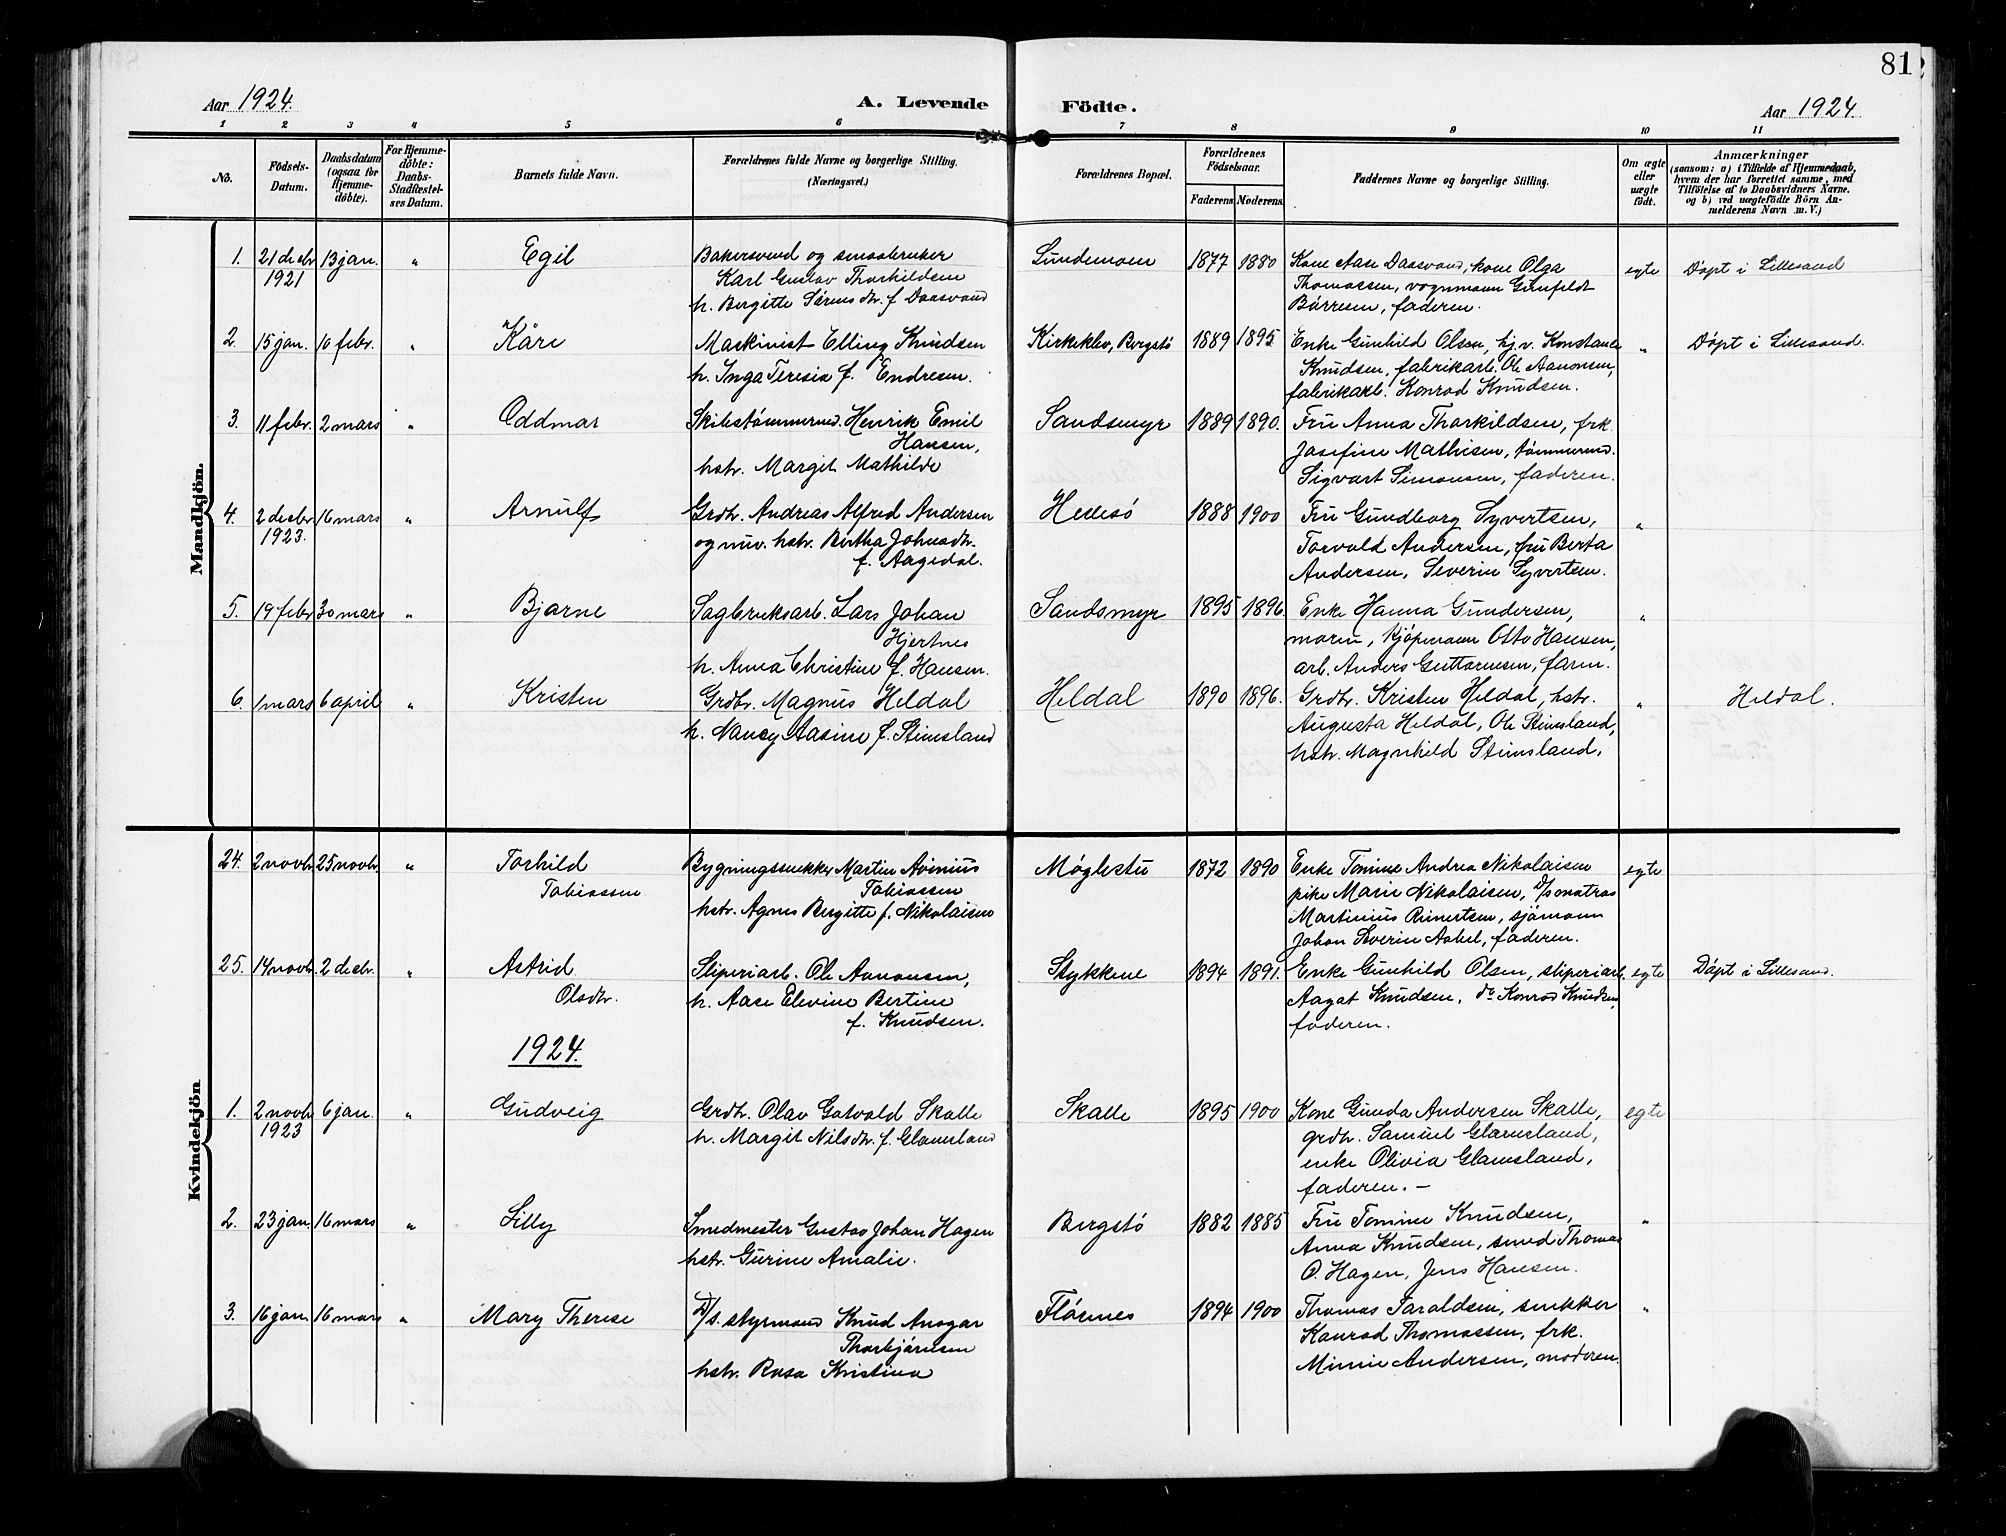 81
Aar 1924.
A. Levende Födte.
Aar 1924
1 2 3 4 5 6 7 8 9 10 11
No.
Födsels-Datum.
Daabsdatum (ogsaa for Hjemme-döbte).
For Hjemme-döbte: Daabs-Stadfæstel-ses Datum.
Barnets fulde Navn.
Forældrenes fulde Navne og borgerlige Stilling.
(Næringsvei.)
Forældrenes Bopæl.
Forældrenes Födselsaar.
Faderens. Moderens.
Faddernes Navne og borgerlige Stilling.
Om ægte eller uægte födt.
Anmærkninger
(saasom: a) i Tilfælde af Hjemmedaab, hvem der har forrettet samme, med Tilföielse af to Daabsvidners Navne. og b) ved uægtefödte Börn An-melderens Navn m. V.)
Mandkjön.
1. 21 decbr 13 jan. " Egil Bakersvend og smaabruker Sundemoen 1877 1880 Kone Aase Daasvand, kone Olga egte Döpt i Lillesand
1921 Karl Gustav Thorkildsen Thomassen, vognmann Gunfeldt
h. Bergitte Sørensdtr. f. Daasvand Börresen, faderen.
2. 15 jan. 10 febr. " Kåre Maskinist Elling Knudsen Kirkeklev, Bergstö 1889 1895 Enke Gunhild Olsen, hj.v. Konstanse " Döpt i Lillesand.
h. Inga Teresia f. Endresen. Knudsen, fabrikarb. Ole Aanonsen,
fabrikarb. Konrad Knudsen.
3. 11 febr. 2 mars " Oddmar Skibstømmermd. Henrik Emil Sandsmyr 1889 1890. Fru Anna Thorkildsen, frk.
Hansen, Josefine Mathisen, tømmermd.
hstr. Margit Mathilde Sigvart Simonsen, faderen.
4. 2 decbr 16 mars " Arnulf Grdbr. Andreas Alfred Andersen Hedesö 1888 1900 Fru Gundborg Syvertsen, "
1923. og nuv. hstr. Bertha Johnsdtr. Torvald Andersen, fru Berta
f. Aagedal. Andersen, Severin Syvertsen.
5. 19 febr 30 mars " Bjarne Sagbruksarb. Lars Johan Sandsmyr 1895 1896. Enke Hanna Gundersen, "
Hjertnes moren, kjöpmann Otto Hansen,
h. Anna Christine f. Hansen. arb. Anders Guttormsen, faren.
6. 1 mars 6 april " Kristen Grdbr. Magnus Heldal Heldal 1890 1896. Grdbr. Kristen Heldal, hstr. " Heldal.
h. Nancy Aasine f. Stimsland Augusta Heldal, Ole Stimsland,
hstr. Magnhild Stimsland.
Kvindekjön
24. 2 novbr 25 novbr. " Torhild Bygningssnekker Martin Avinius Möglestu 1872 1890 Enke Tomine Andrea Nikolaisen egte
Tobiassen Tobiassen pike Marie Nikolaisen, d/s matros
hstr. Agnes Bergitte f. Nikolaisen Martinius Reinertsen, sjömann
Johan Severin Aabel, faderen.
25. 14 novbr. 2 decbr. " Astrid Sliperiarb. Ole Aanonsen, Stykkene 1894 1891. Enke Gunhild Olsen, sliperiarb. egte Döpt i Lillesand.
Olsdtr. h. Aase Elevine Bertine Aagot Knudsen, do Konrad Knudsen,
f. Knudsen. faderen.
1924.
1. 2 novbr 6 jan. " Gudveig Grdbr. Olav Gotvald Skalle Skalle 1895 1900 Kone Gunda Andersen Skalle, egte
1923 h. Margit Nilsdtr. f. Glamsland grdbr. Samuel Glamsland,
enke Olivia Glamsland,
faderen. –
2. 23 jan. 16 mars " Lilly Smedmester Gustav Johan Hagen Bergstö 1882 1885 Fru Tomine Knudsen, "
hstr. Gurine Amalie. Anna Knudsen, smed Thomas
O. Hagen, Jens Hansen.
3. 16 jan. 16 mars " Mary Therese D/s. styrmand Knud Ansgar Flörenes 1894 1900 Thomas Saraldsen, snekker "
Thorbjörnsen Konrad Thomassen, frk.
hstr. Rosa Kristina Minnie Andersen, moderen.